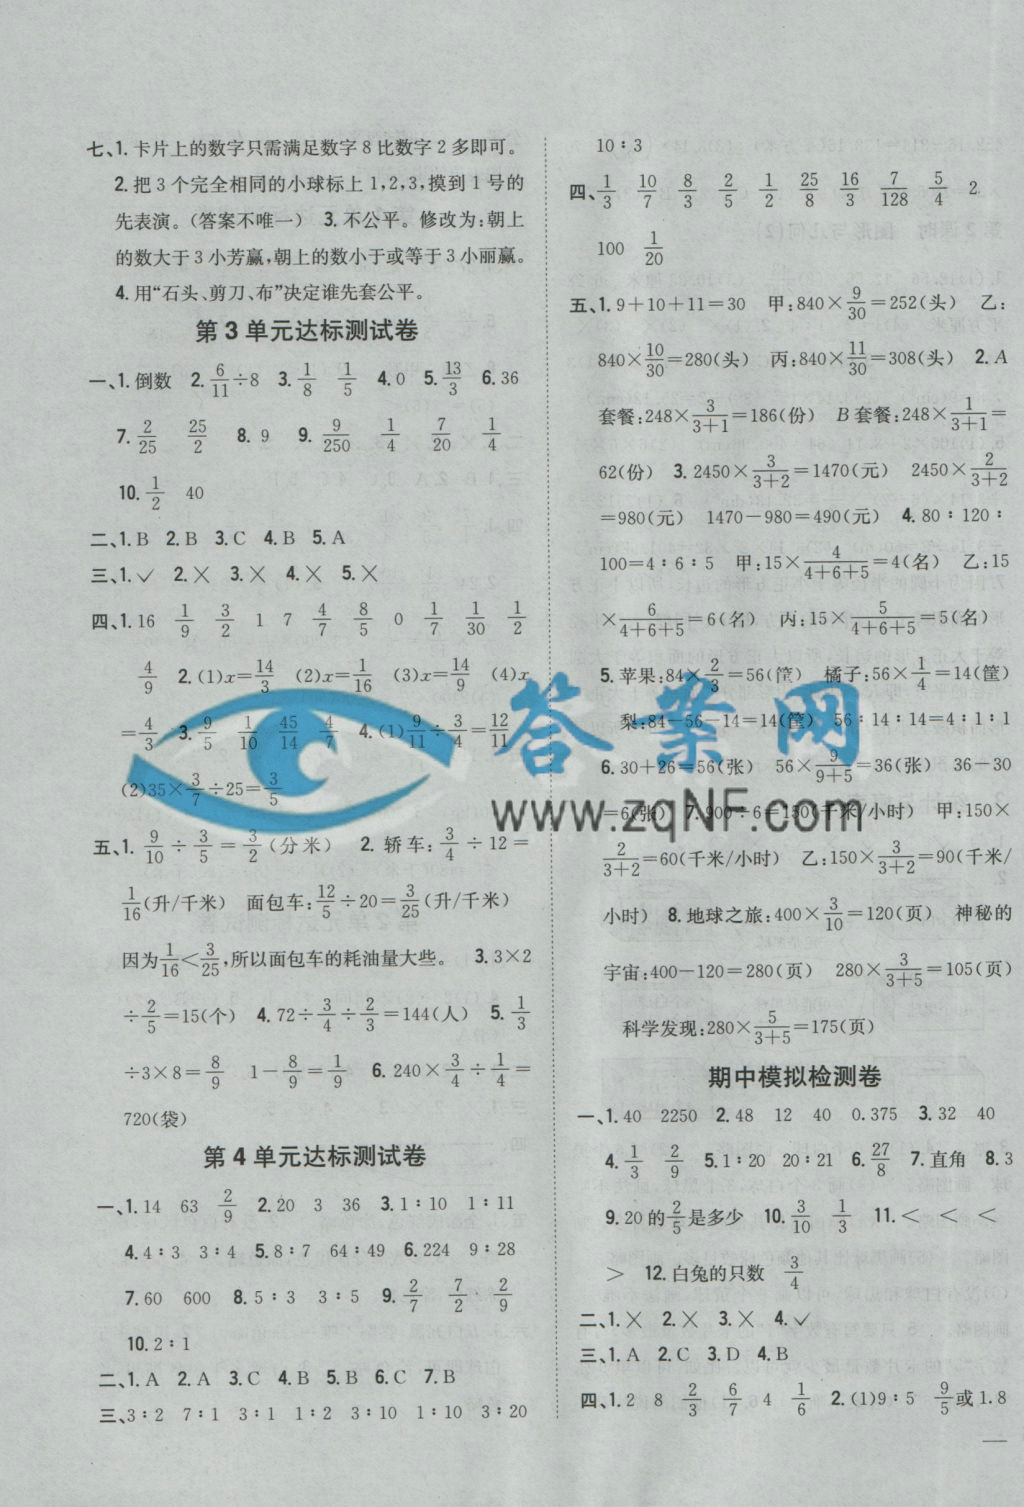 七、1. 卡片上的数字只需满足数字 8 比数字 2 多即可。
2. 把 3 个完全相同的小球标上 1,2,3,摸到 1 号的
先表演。(答案不唯一) 3. 不公平。修改为:朝上
的数大于 3 小芳赢,朝上的数小于或等于 3 小丽赢。
4. 用“石头、剪刀、布”决定谁先套公平。
第 3 单元达标测试卷
一、1. 倒数 2. 6/11÷8 3. 1/8 1/5 4. 0 5. 13/3 6. 36
7. 2/25 25/2 8. 9 9. 9/250 1/4 7/20 1/4
10. 1/2 40
二、1. B 2. B 3. C 4. B 5. A
三、1. ✓ 2. × 3. × 4. × 5. ×
四、1. 16 1/9 3/2 1 7 4/7 8/5 0 1/7 1/30 1/2
4/9 2. (1)x=14/3 (2)x=1/16 (3)x=14/9 (4)x
=4/3 3. 9/5 1/10 45/14 4/7 4. (1)9/11÷3/4=12/11
(2)35×3/7÷25=3/5
五、1. 9/10÷3/5=3/2(分米) 2. 轿车:3/4÷12=
1/16(升/千米) 面包车:12/5÷20=3/25(升/千米)
因为1/16<3/25,所以面包车的耗油量大些。 3. 3×2
÷2/5=15(个) 4. 72÷3/4÷2/3=144(人) 5. 1/3
÷3×8=8/9 1-8/9=1/9 6. 240×3/4÷1/4=
720(袋)
第 4 单元达标测试卷
一、1. 14 63 2/9 2. 20 3 36 3. 1∶10 1∶11
4. 4∶3 3∶4 5. 8∶7 64∶49 6. 224 9∶28
7. 60 600 8. 5∶3 3∶5 9. 2/7 7/2 2/9
10. 2∶1
二、1. A 2. A 3. C 4. B 5. B 6. C 7. B
三、3∶2 7∶1 3∶1 1∶2 3∶10 1∶10 3∶20
10∶3
四、1/3 10/7 8/3 2/5 1/2 25/8 16/3 7/128 5/4 2
100 1/20
五、1. 9+10+11=30 甲:840×9/30=252(头) 乙:
840×10/30=280(头) 丙:840×11/30=308(头) 2. A
套餐:248×3/(3+1)=186(份) B 套餐:248×1/(3+1)=
62(份) 3. 2450×3/(3+2)=1470(元) 2450×2/(3+2)
=980(元) 1470-980=490(元) 4. 80∶120∶
100=4∶6∶5 甲:15×4/(4+6+5)=4(名) 乙:15
×6/(4+6+5)=6(名) 丙:15×5/(4+6+5)=5(名)
5. 苹果:84×2/3=56(筐) 橘子:56×1/4=14(筐)
梨:84-56-14=14(筐) 56∶14∶14=4∶1∶1
6. 30+26=56(张) 56×9/(9+5)=36(张) 36-30
=6(张) 7. 900÷6=150(千米/小时) 甲:150×
2/(3+2)=60(千米/小时) 乙:150×3/(3+2)=90(千米/
小时) 8. 地球之旅:400×3/10=120(页) 神秘的
宇宙:400-120=280(页) 280×3/(3+5)=105(页)
科学发现:280×5/(3+5)=175(页)
期中模拟检测卷
一、1. 40 2250 2. 48 12 40 0.375 3. 32 40
4. 1/3 2/9 5. 1∶20 20∶21 6. 27/8 7. 直角 8. 3
9. 20 的2/5是多少 10. 3/10 1/3 11. < < <
> 12. 白兔的只数 3/4
二、1. × 2. × 3. × 4. ✓
三、1. A 2. C 3. D 4. B
四、1. 2 8 2/3 6/7 4 1/6 2. (1)9∶5 9/5或 1.8
答案网
www.zqNF.com